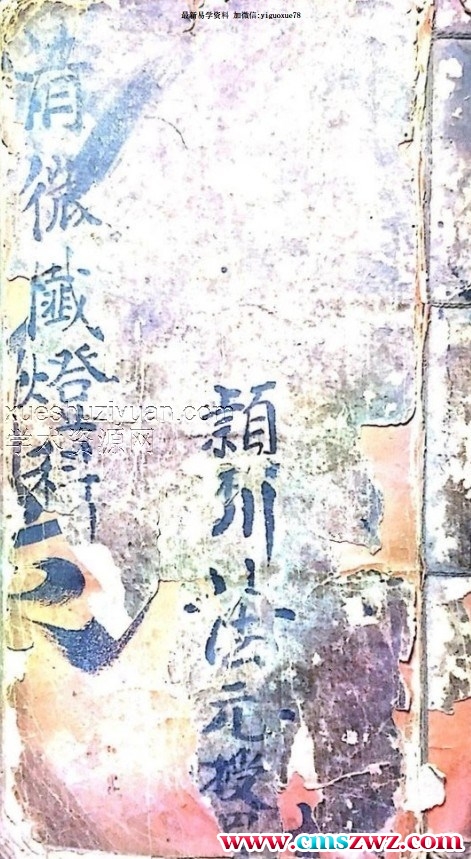 最新易学资料 加微信:yiguoxue78
清微讖燈科
潁川
法元授
xueshuziyuan.com
学术资源网
www.cmszwz.com